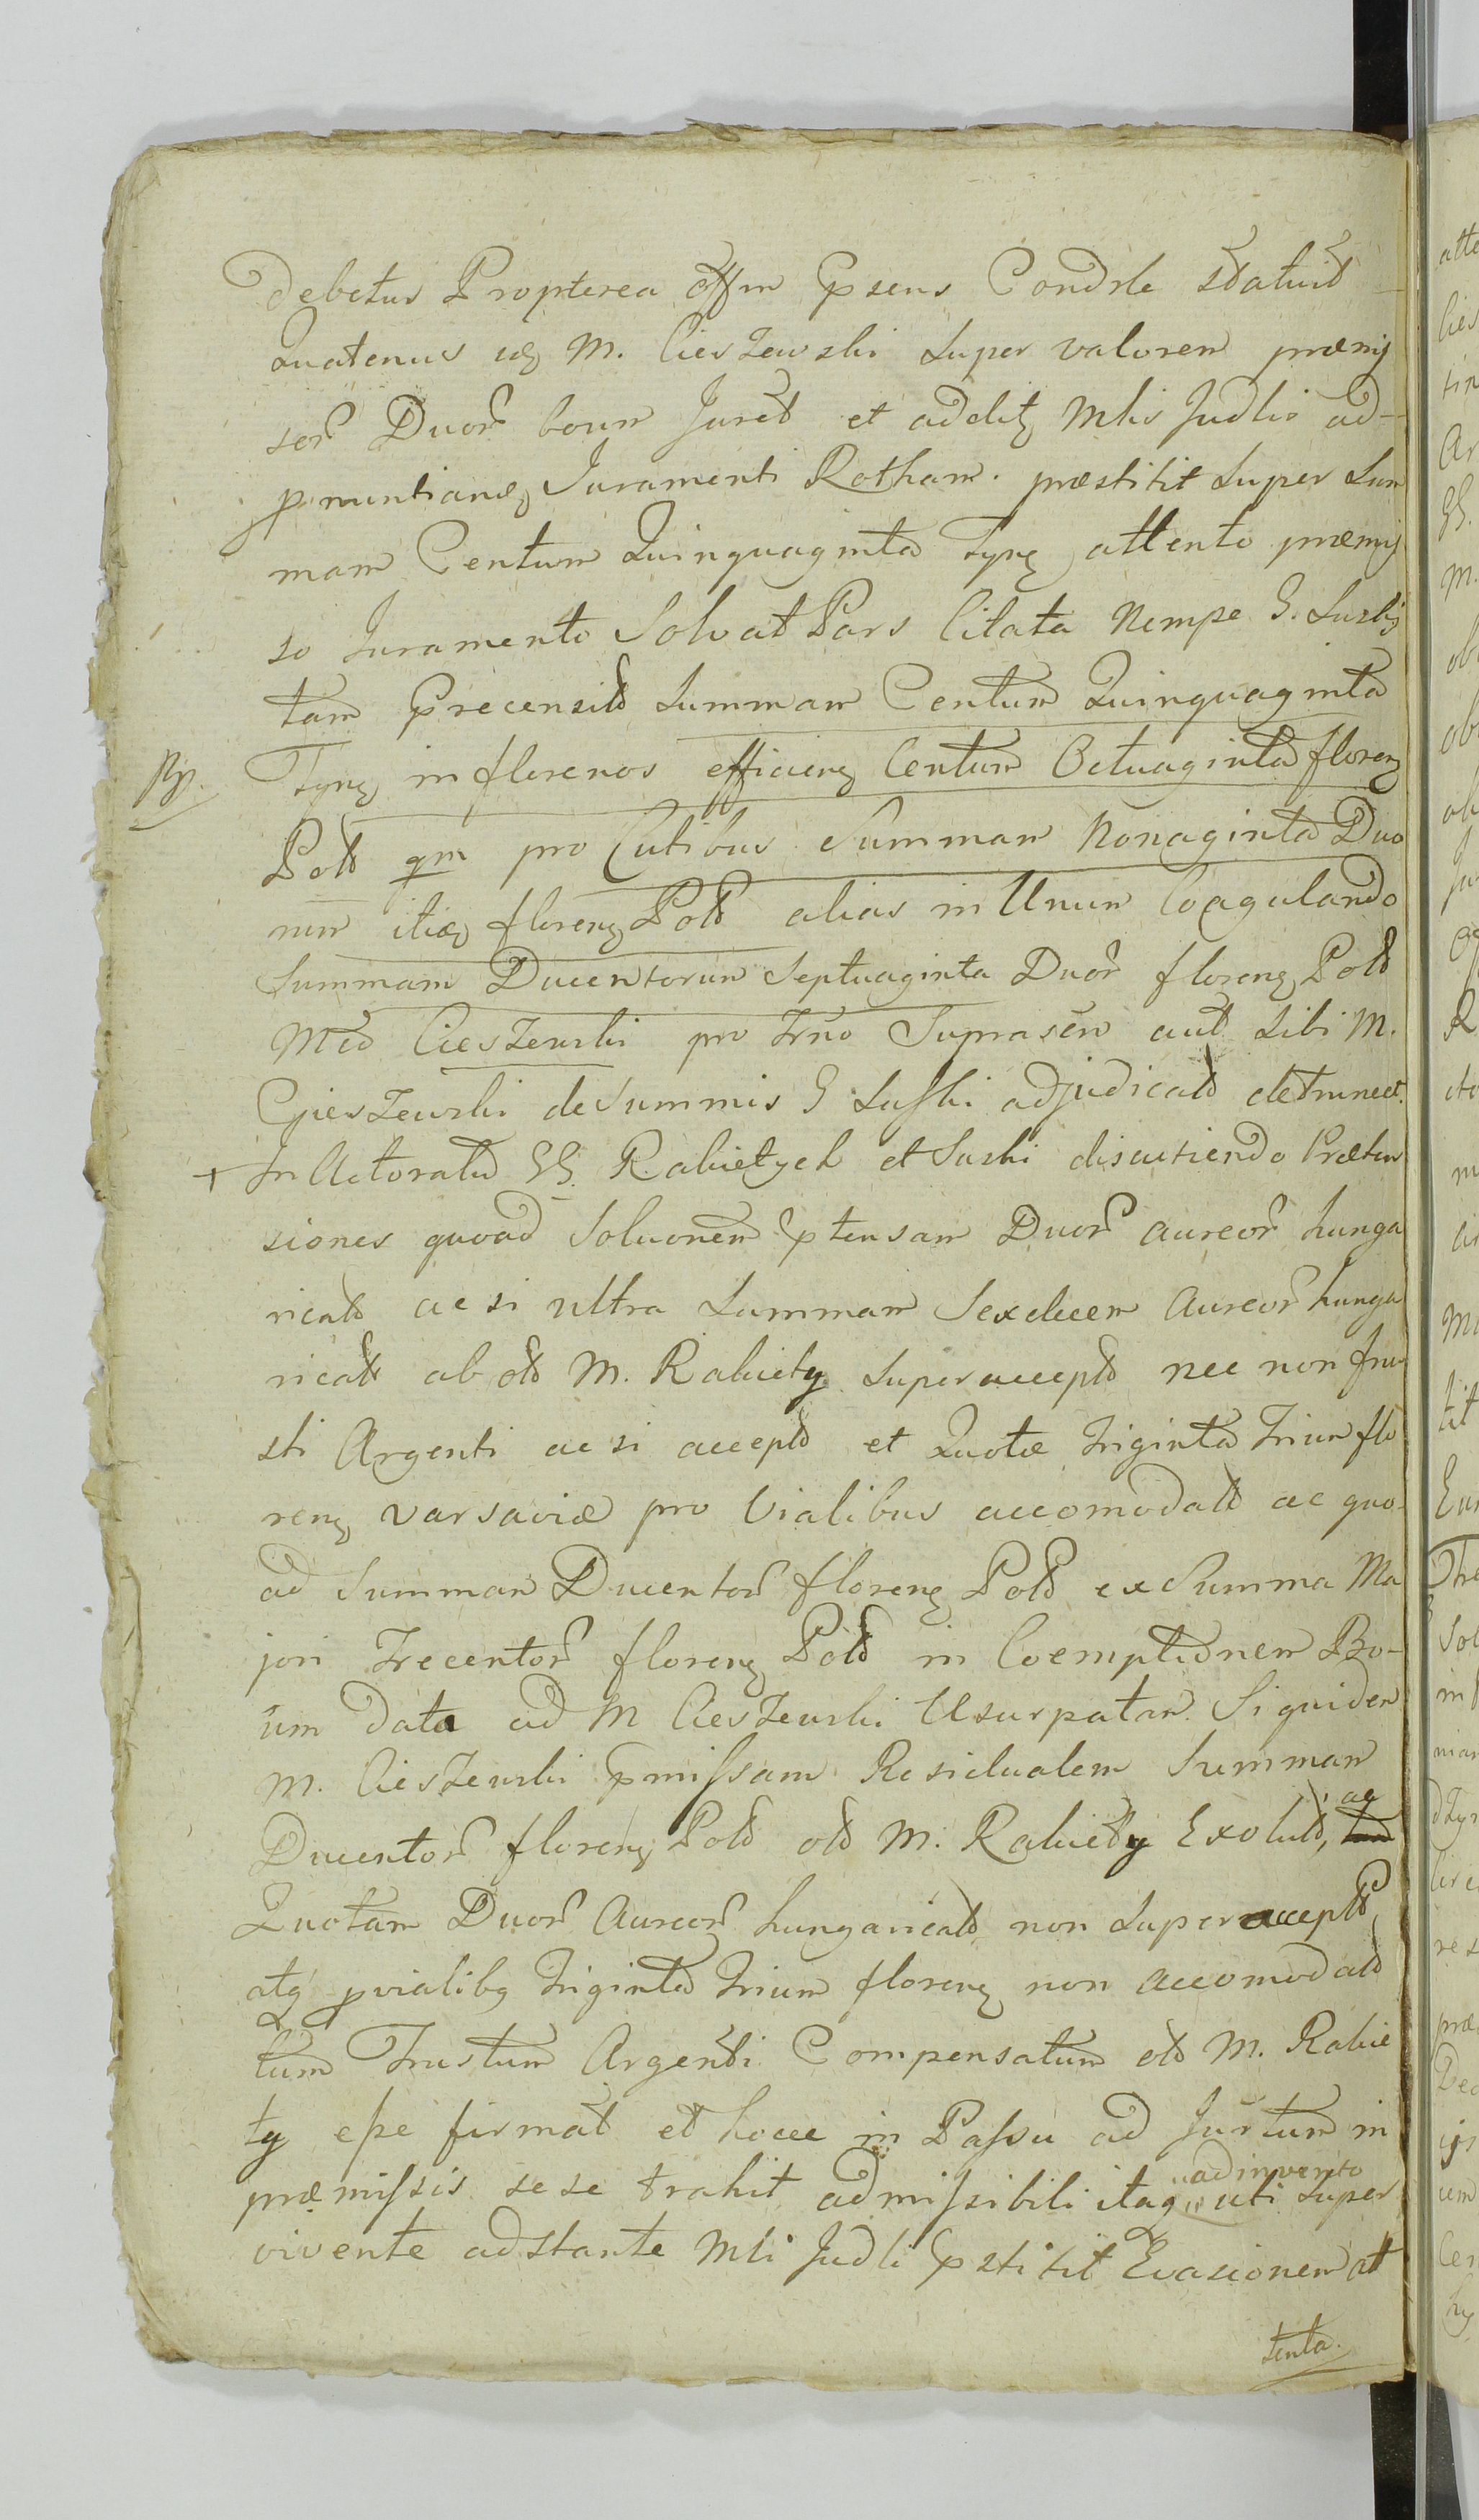 Debetur Propterea offm psens Condrle statuit
Quatenus idq M. Cieszewski super valorem præmis
sor Duor boum Juret et addelitq Mlis Judlis ad-
pnuntianq Juramenti Rotham. præstitit super Sum
mam Centum Quinquaginta Tynq attento præmis
so Juramento Solvat Pars Citata Nempe G. Suski
tam precensit Summam Centum Quinquaginta
Tynq in florenos efficienq Centum Octuaginta florenq
Polt qm pro Cutibus Summam Nonaginta Duo
rum itiq florenq Polt alias in Unum Coagulando
Summam Ducentorum Septuaginta Duor florenq Polt
Mco Cieszewski pro Trno Suprasen aut sibi M.
Cieszewski de Summis G Suski adjudicatt detruncet.
+ In Actoratu GG. Rabietych et Suski discutiendo Præten
siones quoad Soluonem ptensam Duor aureor hunga
ricalt ac si ultra Summam Sexdecem Aureor hunga
ricalt ab olt M. Rabiety superaccept nec non frus
sti Argenti ac si accept et Quotæ Triginta Trium flo
renq Varsaviæ pro Vialibus accomodatt ac quo-
ad Summam Ducentor florenq Polt ex Summa Ma
jori Trecentor florenq Polt in Coemptionem Bo-
um data ad M Cieszewski Usurpatam. Siquidem
M. Cieszewski pmissam Residualem Summam
Ducentor florenq Polt olt M. Rabiety Exolvit, ac
Quotam Duor Aureor hungaricalt non superaccept,
atq pvialibq Triginta Trium florenq non accomodatt
tum Frustum Argenti Compensatum olt M. Rabie
ty esse firmat et hocce in Passu ad Jurtum in
præmissis sese trahit admissibili itaq adinvento uti super
vivente adstante Mli Judli pstitit Evasionem at
tenta.